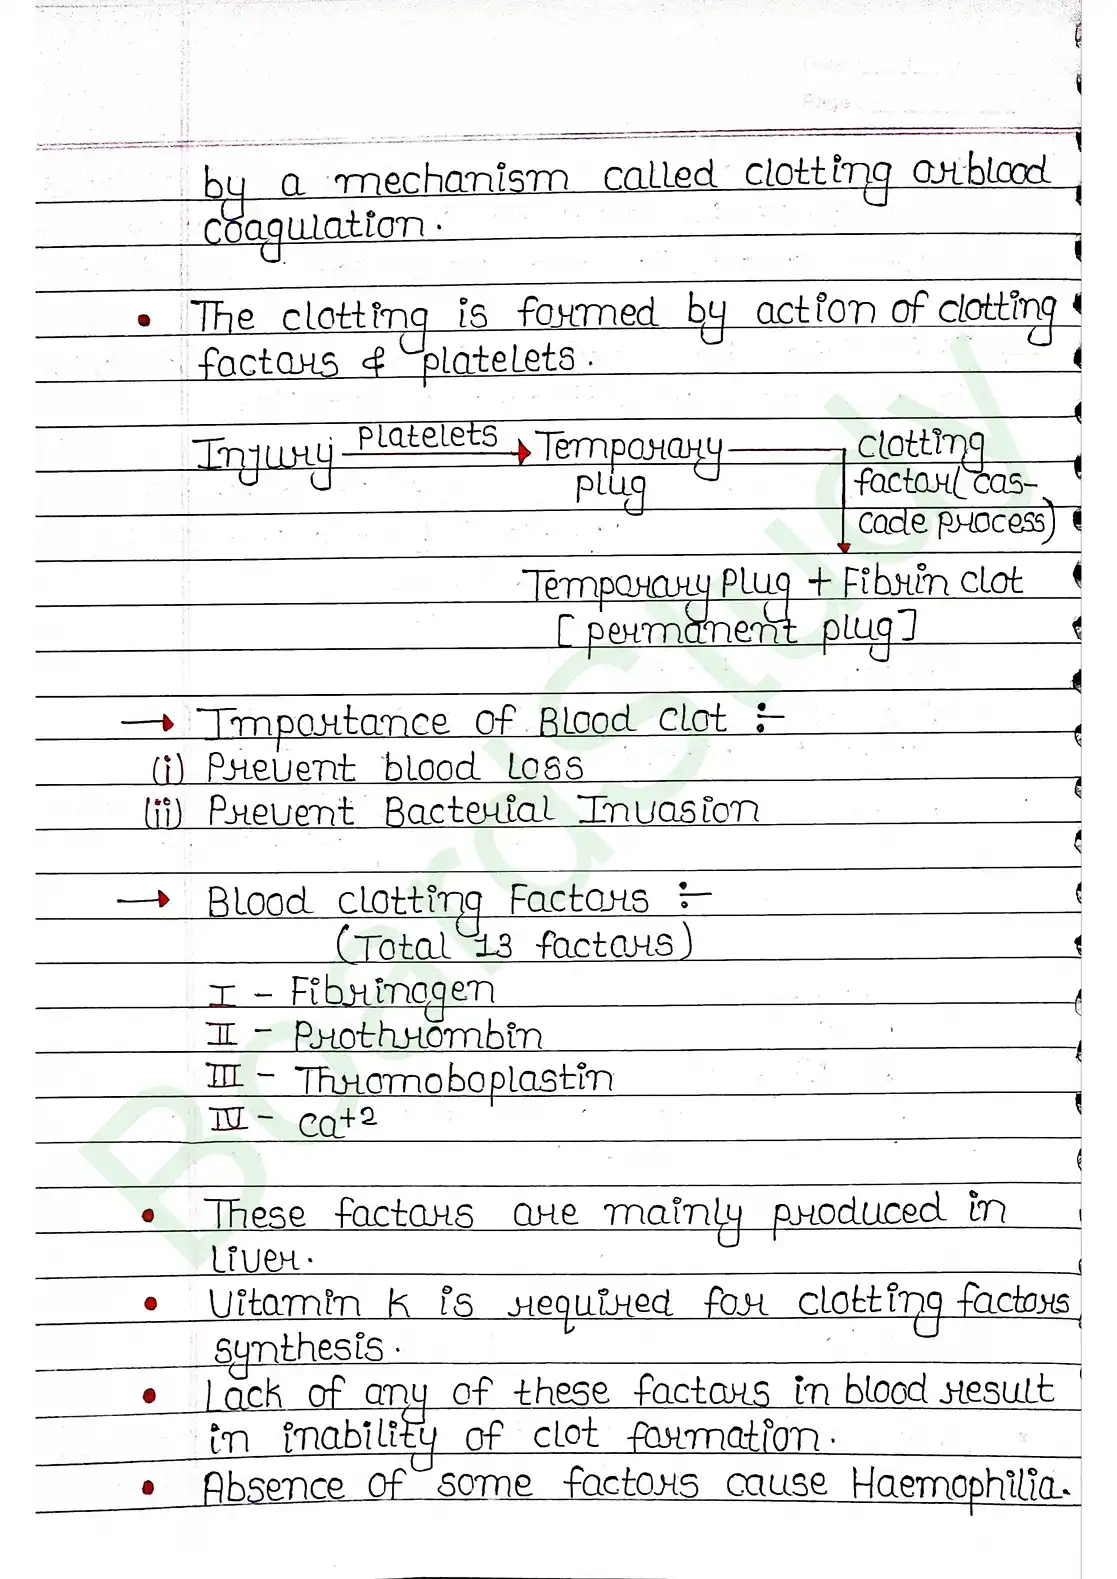 by a mechanism called clotting or blood
coagulation.
• The clotting is formed by action of clotting
factors & platelets.
Injury Platelets → Temporary clotting
plug factor( cas-
cade process)
Temporary Plug + Fibrin clot
[ permanent plug ]
→ Importance of Blood Clot :-
(i) Prevent blood Loss
(ii) Prevent Bacterial Invasion
→ Blood clotting Factors :-
(Total 13 factors)
I - Fibrinogen
II - Prothrombin
III - Thromoboplastin
IV - ca+2
• These factors are mainly produced in
Liver.
• Vitamin K is required for clotting factors
synthesis.
• Lack of any of these factors in blood result
in inability of clot formation.
• Absence of some factors cause Haemophilia.
BoardStudy